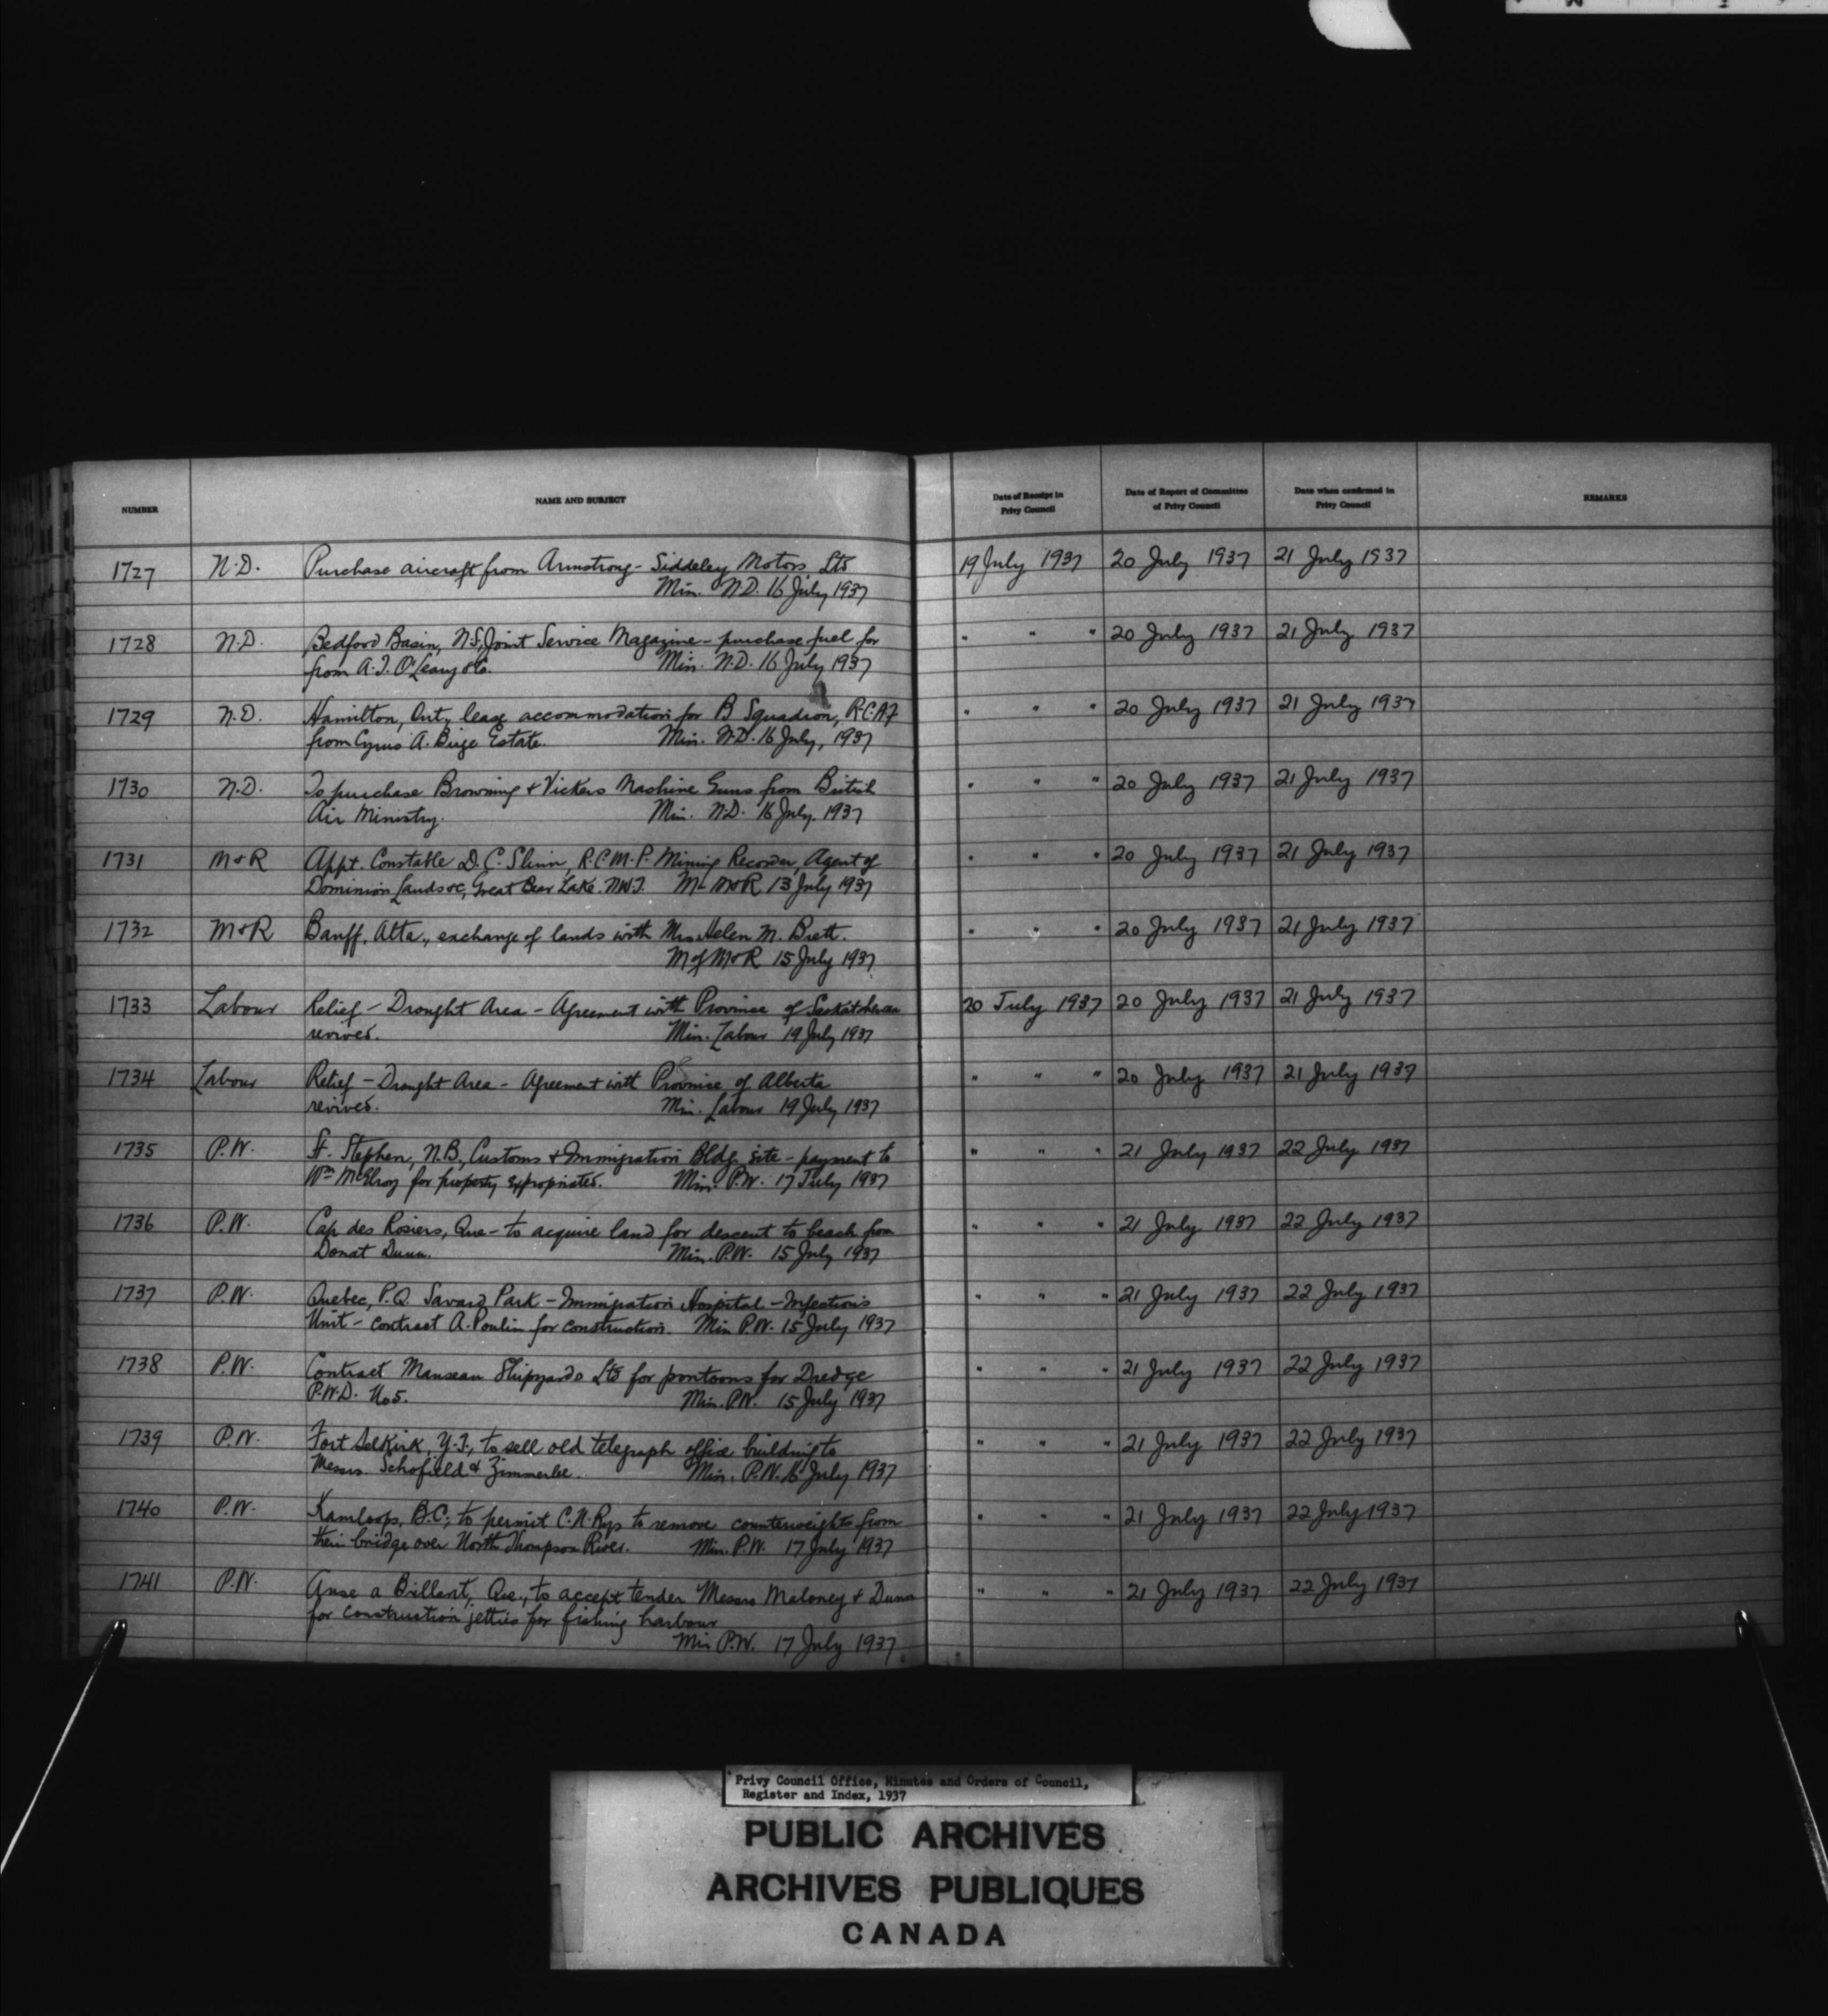 NUMBER NAME AND SUBJECT Date of Receipt in Privy Council Date of Report of Committee of Privy Council Date when confirmed in Privy Council REMARKS
1727 N.D. Purchase aircraft from Armstrong-Siddeley Motors Ltd 19 July 1937 20 July 1937 21 July 1937
Min. N.D. 16 July, 1937
1728 N.D. Bedford Basin, N.S, Joint Service Magazine - purchase fuel for " " " 20 July 1937 21 July 1937
from A.J. O'Leary & Co. Min. N.D. 16 July 1937
1729 N.D. Hamilton, Ont, lease accommodation for B Squadron, R.C.A.F " " " 20 July 1937 21 July 1937
from Cyrus A. Birge Estate. Min. N.D. 16 July, 1937
1730 N.D. To purchase Browning & Vickers Machine Guns from British " " " 20 July 1937 21 July 1937
Air Ministry. Min. N.D. 16 July. 1937
1731 M & R Appt. Constable D.C. Slinn, R.C.M.P. Mining Recorder, Agent of " " " 20 July 1937 21 July 1937
Dominion Lands &c, Great Bear Lake. N.W.T. M- M&R 13 July 1937
1732 M & R Banff, Alta., exchange of lands with Mrs Helen M. Brett. " " " 20 July 1937 21 July 1937
M of M&R 15 July 1937
1733 Labour Relief - Drought Area - Agreement with Province of Saskatchewan 20 July 1937 20 July 1937 21 July 1937
revived. Min. Labour 19 July 1937
1734 Labour Relief - Drought Area - Agreement with Province of Alberta " " " 20 July 1937 21 July 1937
revived. Min. Labour 19 July 1937
1735 P.W. St. Stephen, N.B., Customs & Immigration Bldg. site - payment to " " " 21 July 1937 22 July 1937
Wm McElroy for property expropriated. Min. P.W. 17 July 1937
1736 P.W. Cap des Rosiers, Que - to acquire land for descent to beach from " " " 21 July 1937 22 July 1937
Donat Dunn. Min. P.W. 15 July 1937
1737 P.W. Quebec, P.Q. Savard Park - Immigration Hospital - Infectious " " " 21 July 1937 22 July 1937
Unit - contract A. Poulin for construction. Min P.W. 15 July 1937
1738 P.W. Contract Manseau Shipyards Ltd for pontoons for Dredge " " " 21 July 1937 22 July 1937
P.W.D. No 5. Min. P.W. 15 July 1937
1739 P.W. Fort Selkirk, Y.T., to sell old telegraph office building to " " " 21 July 1937 22 July 1937
Messrs. Schofield & Zimmerlee. Min. P.W. 16 July 1937
1740 P.W. Kamloops, B.C.; to permit C.N. Rys to remove counterweights from " " " 21 July 1937 22 July 1937
their bridge over North Thompson River. Min. P.W. 17 July 1937
1741 P.W. Anse a Brillant, Que., to accept tender Messrs Maloney & Dunn " " " 21 July 1937 22 July 1937
for construction jetties for fishing harbour
Min P.W. 17 July 1937
Privy Council Office, Minutes and Orders of Council,
Register and Index, 1937
PUBLIC ARCHIVES
ARCHIVES PUBLIQUES
CANADA